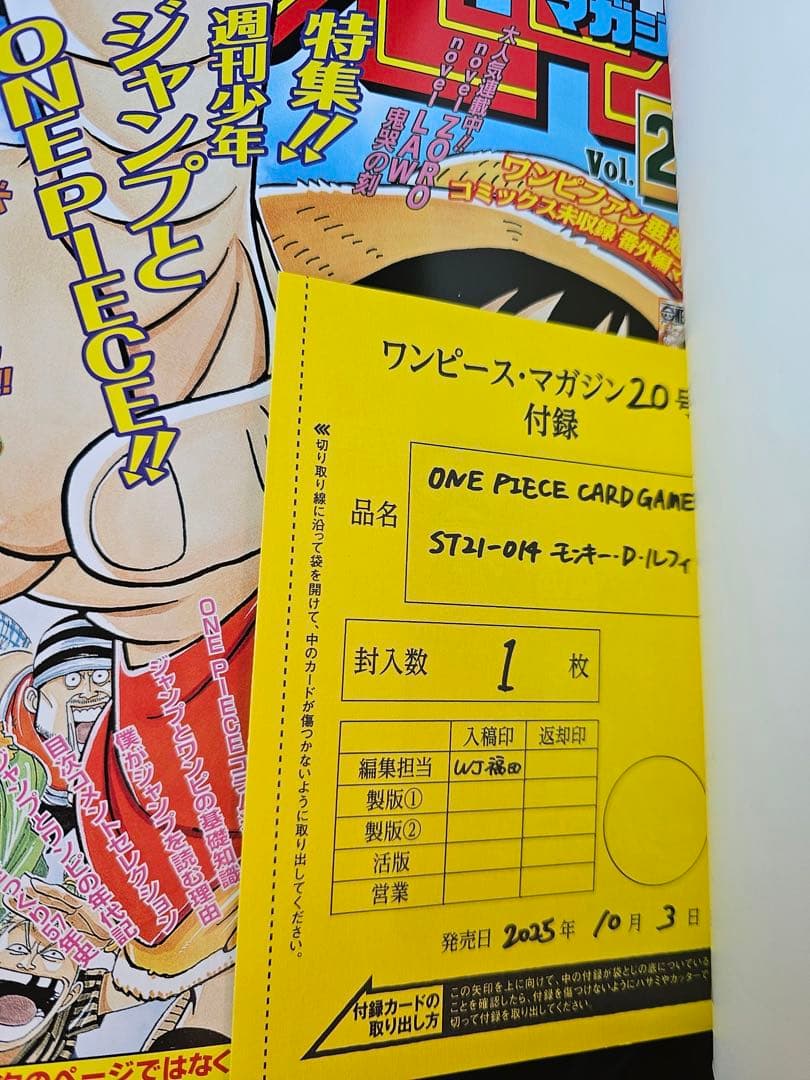 マガジ
Vol.2
大人気連載中!!
novel ZORO
novel LAW
鬼哭の刻
特集!!
週刊少年
ジャンプと
ONE PIECE!!
ワンピファン垂涎
コミックス未収録 番外編マ
ワンピース・マガジン20号
付録
<<<切り取り線に沿って袋を開けて、中のカードが傷つかないように取り出してください。
品名
ONE PIECE CARD GAME
ST21-014 モンキー・D・ルフィ
封入数 1 枚
入稿印 返却印
編集担当 WJ福田
製版①
製版②
活版
営業
発売日 2025年 10月 3日
付録カードの
取り出し方
この矢印を上に向けて、中の付録が袋とじの底についている
ことを確認したら、付録を傷つけないようにハサミやカッターで
切って付録を取り出してください。
ONE PIECEコミ
ジャンプとワンピの基礎知識
僕がジャンプを読む理由
目次コメントセレクション
ジャンプとワンピの年代記
のページではなく